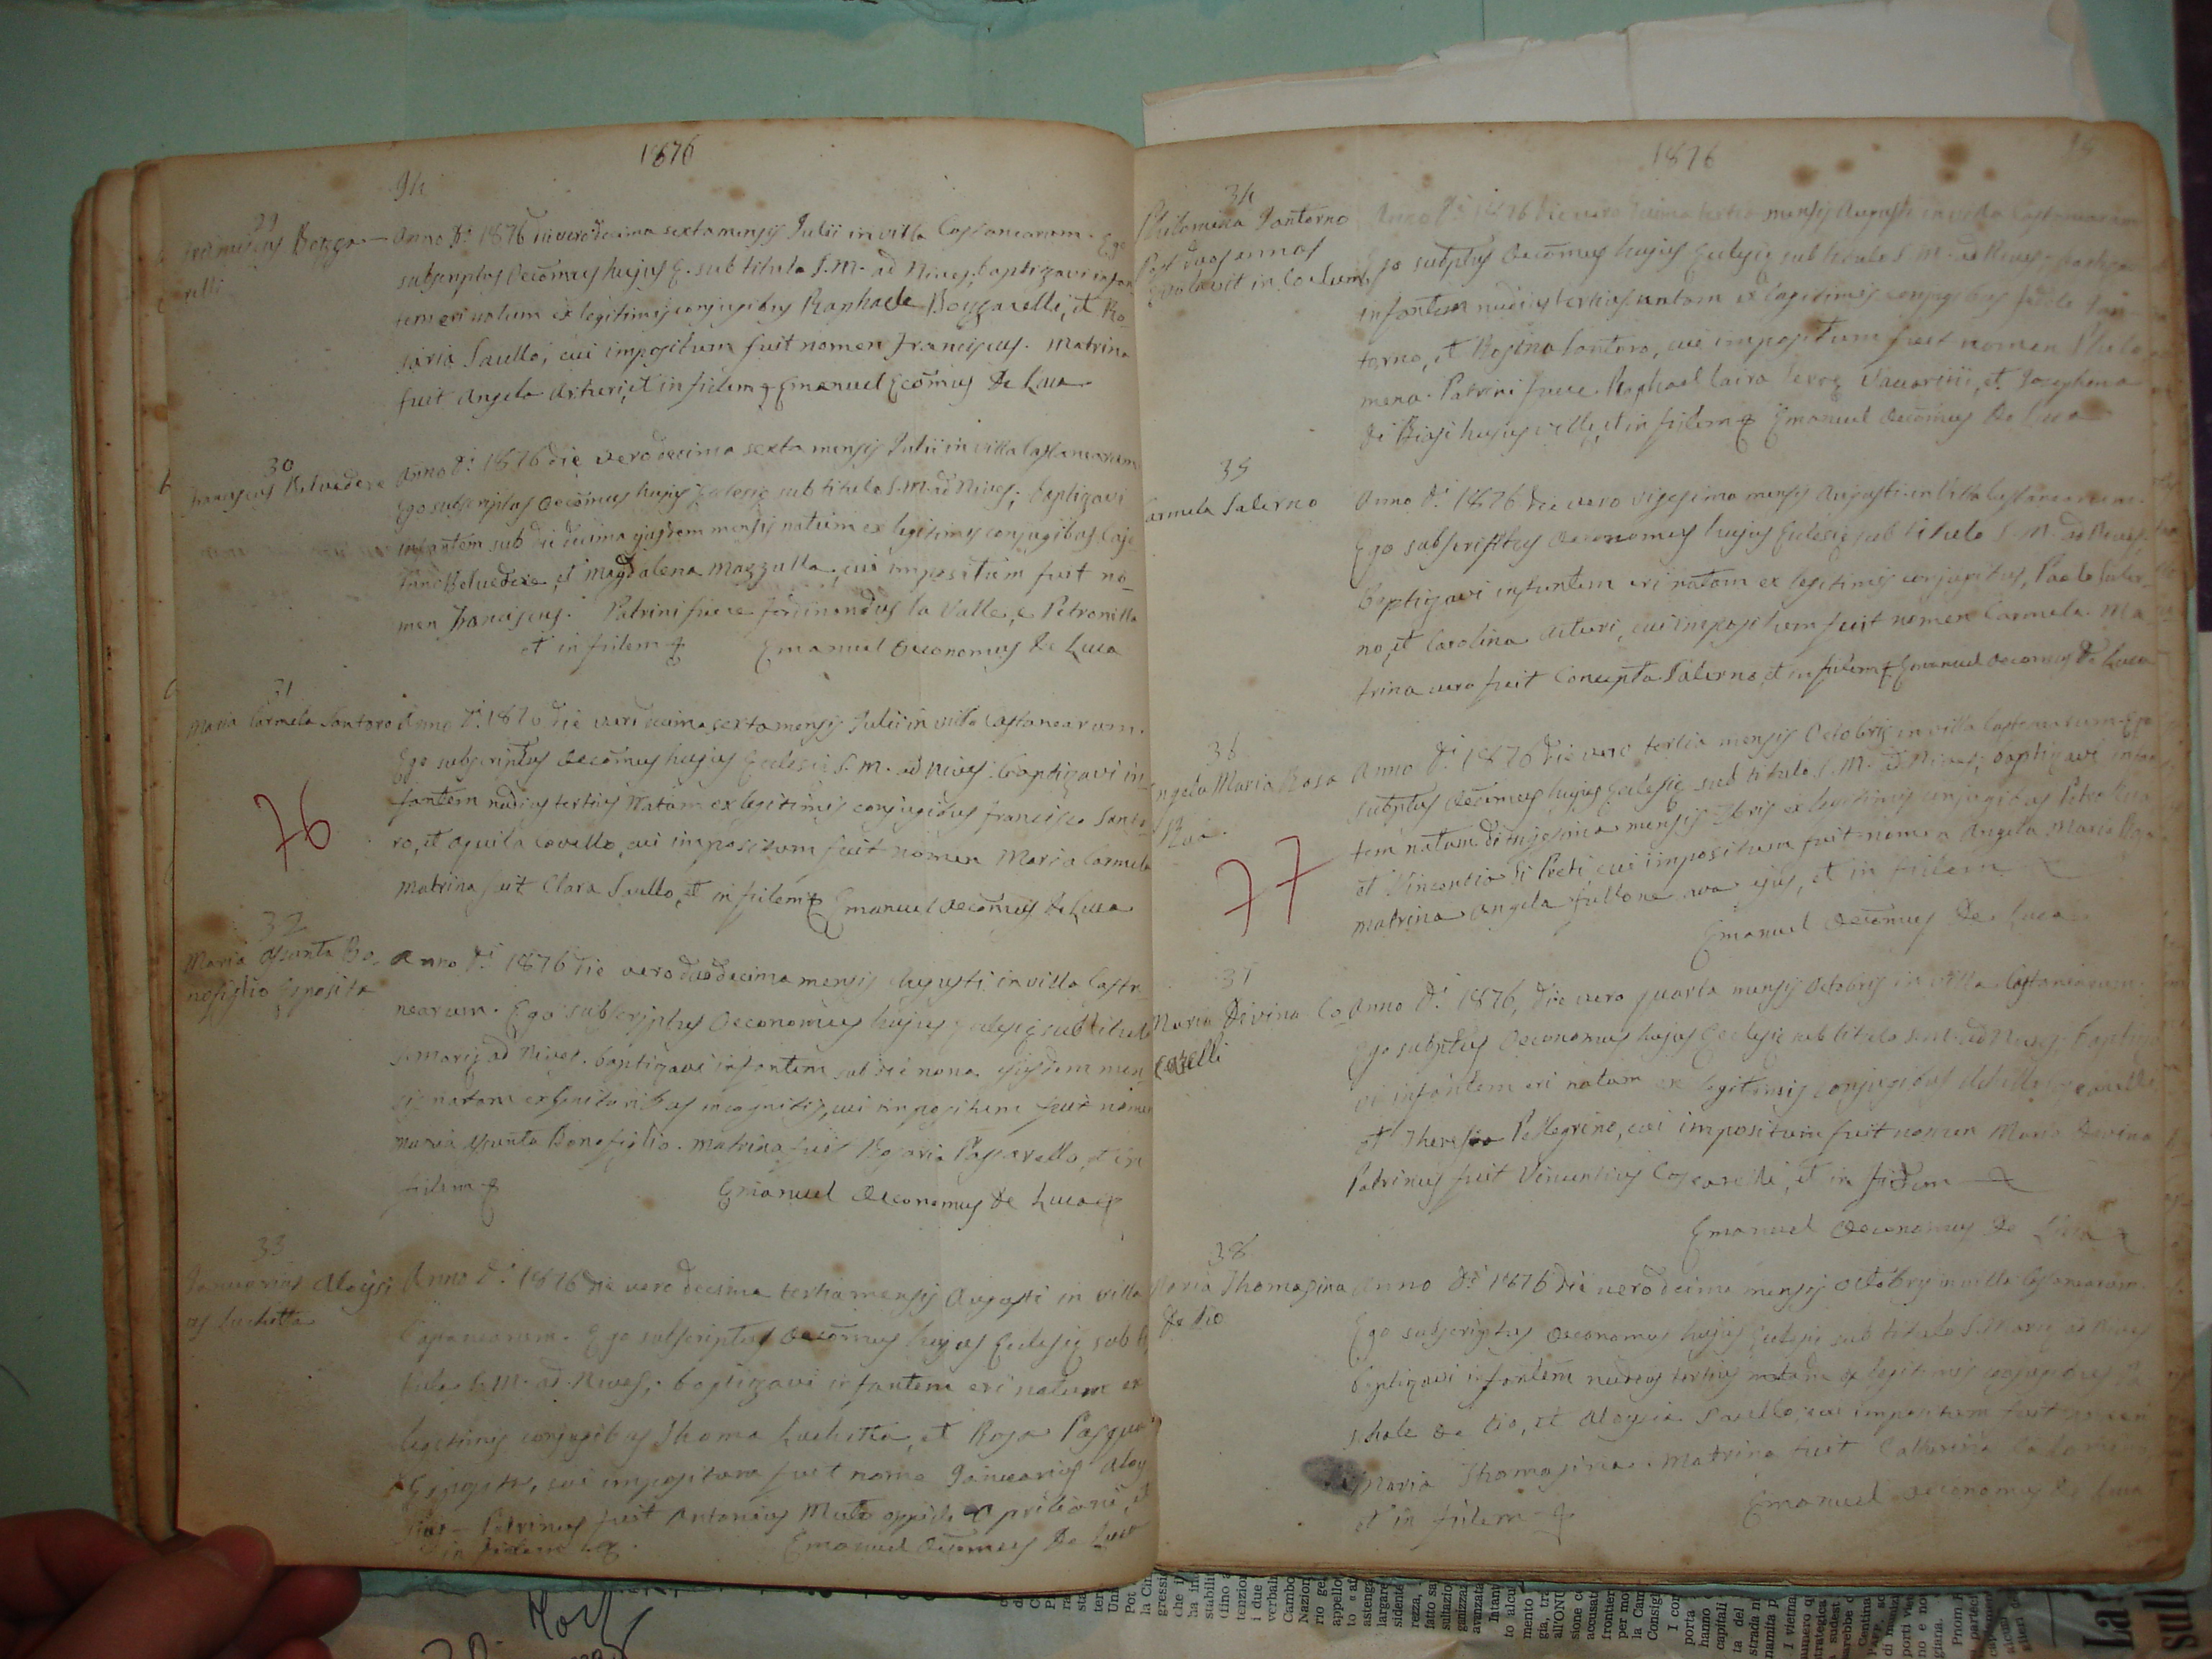 1876
29
Anno D.i 1876 die vero decima sexta mensis Julii in villa Castanearum. Ego
subscriptus Oecōmus hujus E. sub titulo S. M. ad Nives, baptizavi infan
tem eri natum ex legitimis conjugibus Raphaele Bozzarelli, et Ro_
saria Saullo, cui impositum fuit nomen Franciscus. Matrina
fuit Angela Arturi, et in fidem Emanuel Ecōmus De Luca
30
Franciscus Belvedere
Anno D.i 1876 die vero decima sexta mensis Julii in villa Castanearum
Ego subscriptus Oecōmus hujus Eclesie sub titulo S. M. ad Nives; baptizavi
infantem sub die decima ejusdem mensis natum ex legitimis conjugibus Caje
tano Belvedere, et Magdalena Mazzulla, cui impositum fuit no_
men Franciscus. Patrini fuere Ferdinandus la Valle, e Petronilla
et in fidem Emanuel Oeconomus De Luca
31
Maria Carmela Santoro
Anno D.i 1876 die vero decima sexta mensis Julii in villa Castanearum.
Ego subscriptus Oecōmus hujus Eclesie S. M. ad Nives baptizavi in_
fantem nudius tertius natam ex legitimis conjugibus Francisco Santo
ro, et Aquila Covello, cui impositum fuit nomen Maria Carmela
matrina fuit Clara Saullo, et in fidem Emanuel Oecōmus De Luca
76
32
Maria Assunta Bo_
nofiglio Esposita
Anno D.i 1876 die vero duodecima mensis Augusti in villa Casta_
nearum. Ego subscriptus Oeconomus hujus Eclesie sub titulo
S. Marie ad Nives. baptizavi infantem sub die nona ejusdem men_
sis natam ex genitoribus incognitis, cui impositum fuit nomen
Maria Assunta Bonofiglio. Matrina fuit Rosaria Passarello, et in
fidem Emanuel Oeconomus De Luca
33
Januarius Aloysi
us Luchetta
Anno D.i 1876 die vero decima tertia mensis Augusti in villa
Castanearum. Ego subscriptus Oecōmus hujus Eclesie sub ti
tulo S. M. ad Nives; baptizavi infantem eri natum ex
legitimis conjugibus Thoma Luchetta, et Rosa Pasqua
Esposito, cui impositum fuit nome Januarius Aloy
Patrinus fuit Antonius Muto et
in fidem Emanuel Oecōmus De Luca
1876
34
Philomena Jantorno
Post duos annos
evolavit in Coelum
Anno D.i 1876 die vero decima tertia mensis Augusti in villa Castanearum
Ego subptus Oecōmus hujus Eclesie sub titulo S. M. ad Nives baptiza
infantem nudius tertius natam ex legitimis conjugibus Fedele Jan_
torno, et Rosina Santoro, cui impositum fuit nomen Philo
mena. Patrini fuere Raphael Caira et Josephina
Di Biasi hujus ville, et in fidem Emanuel Oecōmus De Luca
35
Carmela Salerno
Anno D.i 1876 die vero vigesima mensis Augusti in villa Castanearum.
Ego subscriptus Oeconomus hujus Eclesie sub titulo S. M. ad Nives,
baptizavi infantem eri natam ex legitimis conjugibus, Paolo Saler_
no, et Carolina Arturi, cui impositum fuit nomen Carmela. Ma_
trina vero fuit Concepta Salerno, et in fidem Emanuel Oeconomus De Luca
36
Angela Maria Rosa
Anno D.i 1876 die vero tertia mensis Octobris in villa Castanearum Ego
subptus Oecōmus hujus Eclesie sub titulo S. M. ad Nives; baptizavi infan
tem natam die trigesima mensis 7bris ex legitimis conjugibus Petro
et Vincentia Di Preti cui impositum fuit nomen Angela Maria Rosa
matrina Angela Fullone ava ejus, et in fidem
Emanuel Oecōmus De Luca
77
37
Maria Divina Co_
scarelli
Anno D.i 1876, die vero quarta mensis Octobris in villa Castanearum.
Ego subptus Oeconomus hujus Eclesie sub titulo S. M. ad Nives baptiza
vi infantem eri natam ex legitimis conjugibus
et Theresia Pellegrino, cui impositum fuit nomen Maria Divina
Patrinus fuit Vincentius Coscarelli, et in fidem
Emanuel Oeconomus De Luca
38
Maria Thomasina
De Dio
Anno D.i 1876 die vero decima mensis Octobris in villa Castanearum.
Ego subscriptus Oeconomus hujus Eclesie sub titulo S. Marie ad Nives
baptizavi infantem nudius tertius natam ex legitimis conjugibus Pa
schale De Dio, et Aloysia cui impositum fuit nomen
Maria Thomasina. Matrina fuit Catherina
et in fidem Emanuel Oeconomus De Luca